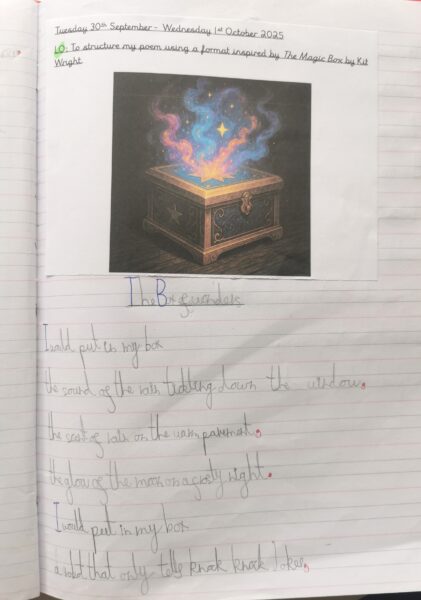 Tuesday 30th September - Wednesday 1st October 2025
LO: To structure my poem using a format inspired by The Magic Box by Kit
Wright
The Box of wonders
I would put in my box
the sound of the rain tickling down the window,
the scent of rain on the warm pavement,
the glow of the moon on a frosty night.
I would put in my box
a robot that only tells knock knock Jokes,